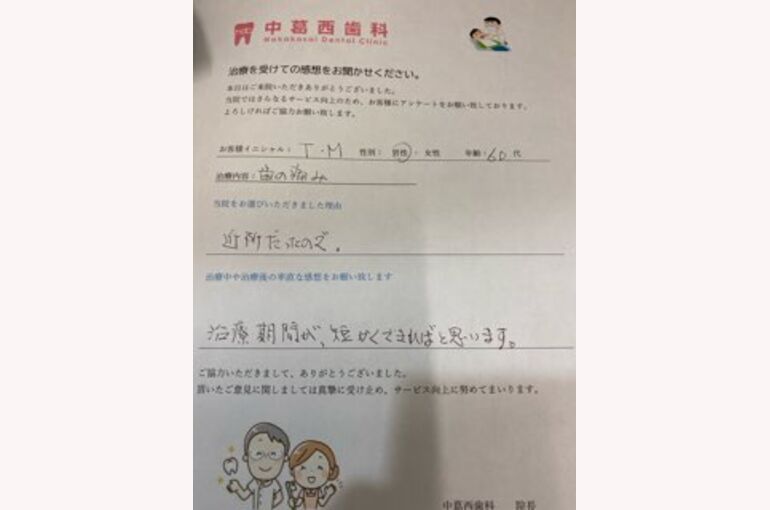 中葛西歯科
Nakakasai Dental Clinic
治療を受けての感想をお聞かせください。
本日はご来院いただきありがとうございました。
当院ではさらなるサービス向上のため、お客様にアンケートをお願い致しております。
よろしければご協力お願い致します。
お客様イニシャル： T・M 性別： 男性・ 女性 年齢：60 代
治療内容：歯の痛み
当院をお選びいただきました理由
近所だったので。
治療中や治療後の率直な感想をお願い致します
治療期間が、短かくできればと思います。
ご協力いただきまして、ありがとうございました。
頂いたご意見に関しましては真摯に受け止め、サービス向上に努めてまいります。
中葛西歯科 院長